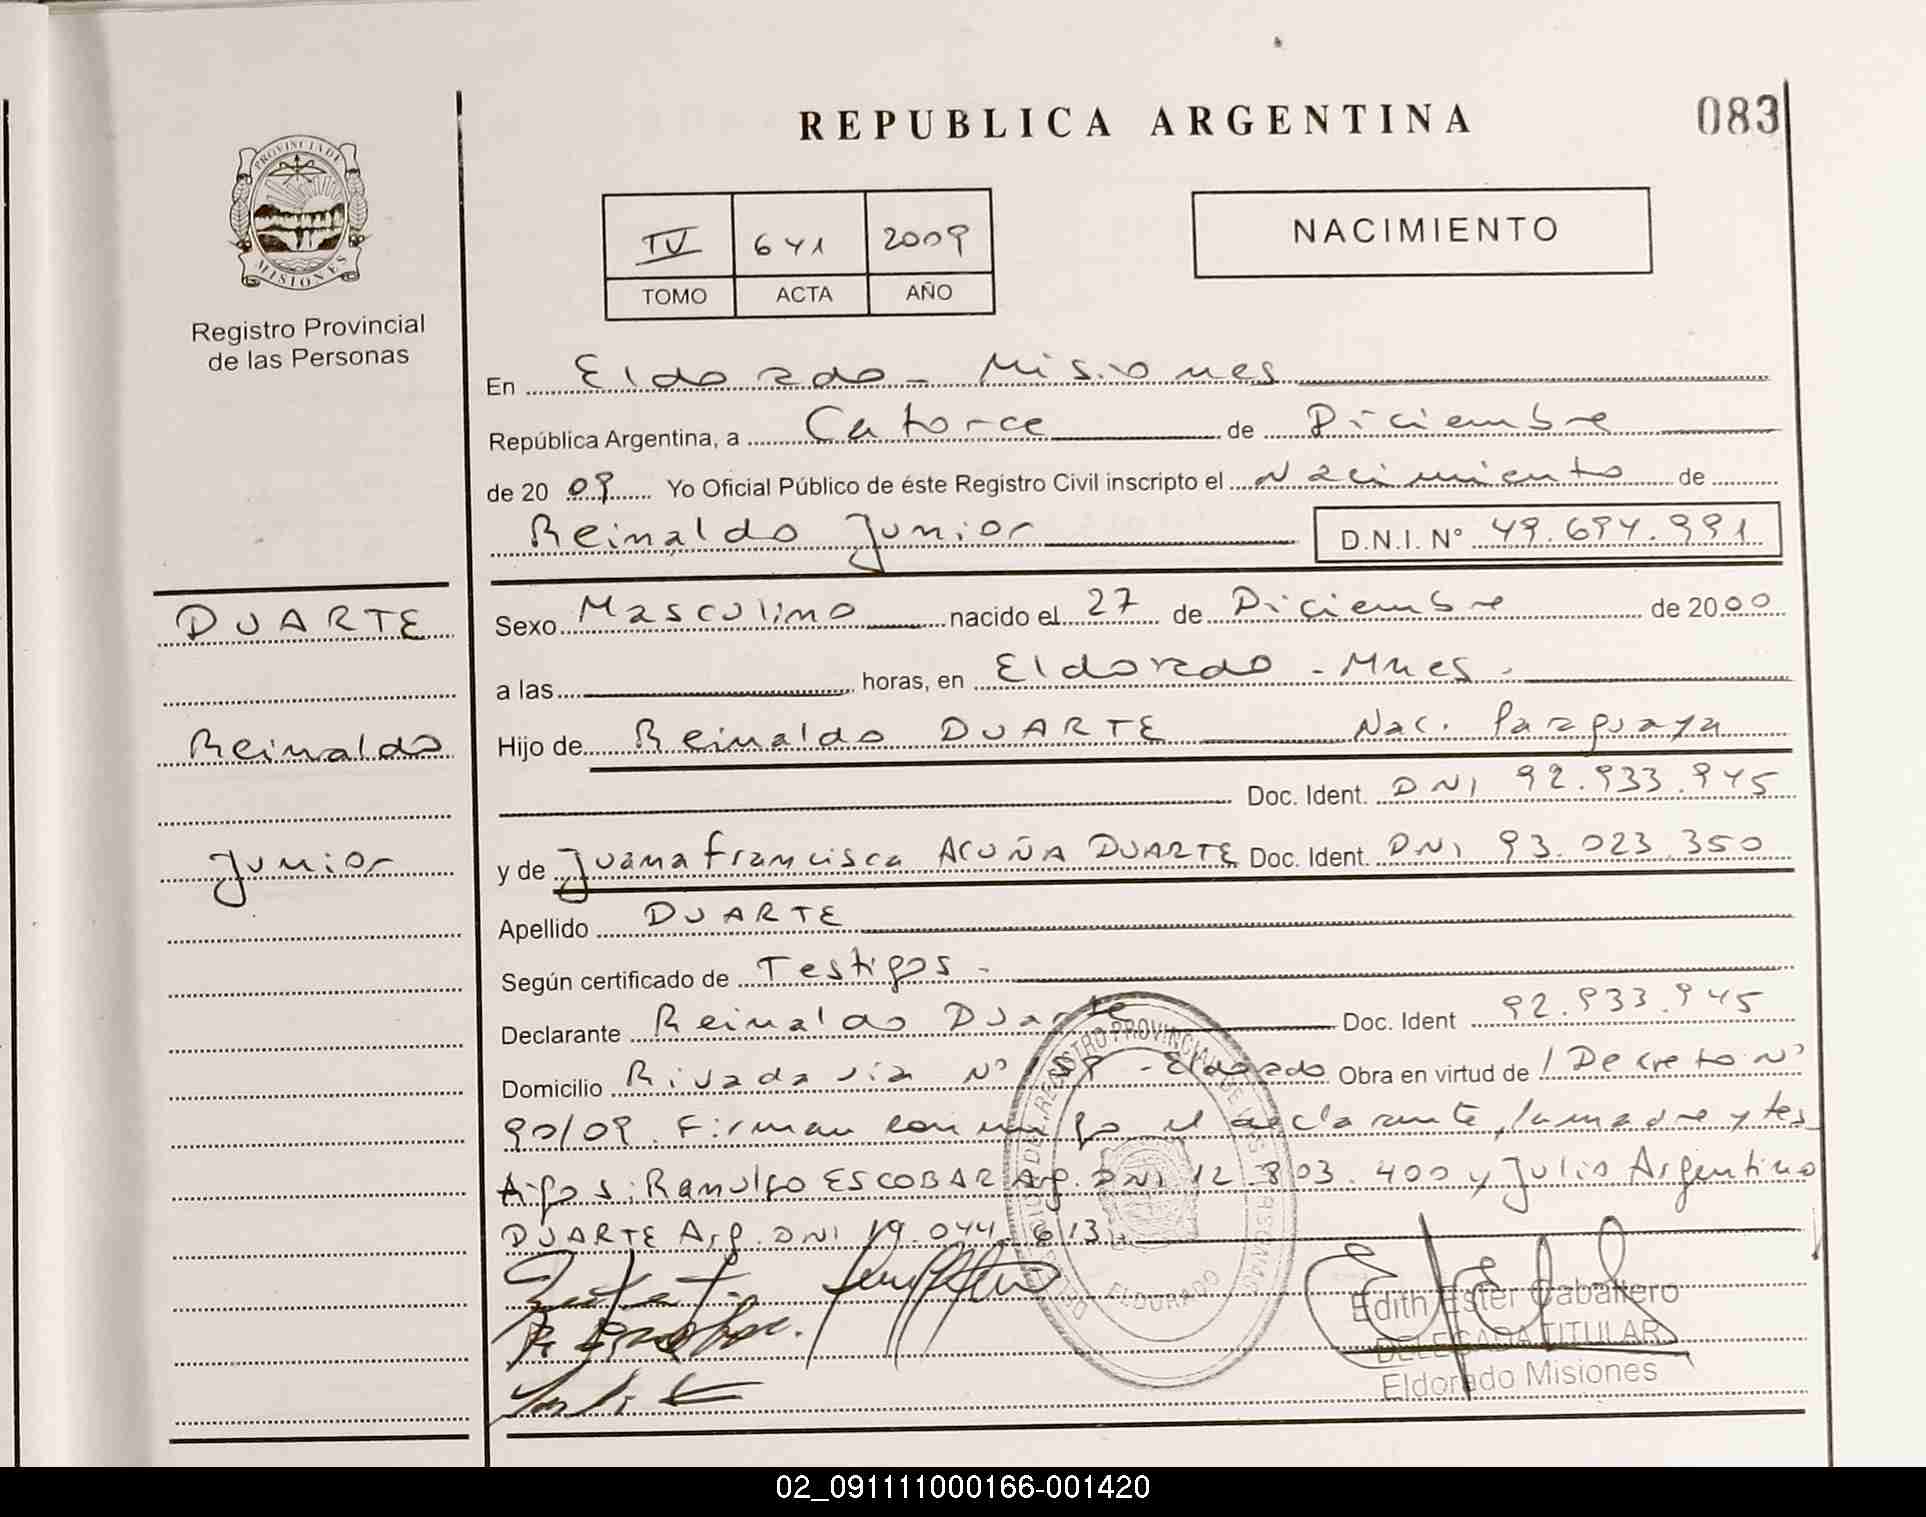 REPUBLICA ARGENTINA
083
PROVINCIA DE
MISIONES
Registro Provincial
de las Personas
IV 641 2009
TOMO ACTA AÑO
NACIMIENTO
En Eldorado - Misiones
República Argentina, a Catorce de Diciembre
de 2009 Yo Oficial Público de éste Registro Civil inscripto el Nacimiento de
Reinaldo Junior D.N.I. N° 49.694.991
DUARTE
Reinaldo
Junior
Sexo Masculino nacido el 27 de Diciembre de 2000
a las horas, en Eldorado - Mnes.
Hijo de Reinaldo DUARTE Nac. Paraguaya
Doc. Ident. DNI 92.933.945
y de Juana Francisca ACUÑA DUARTE Doc. Ident. DNI 93.023.350
Apellido DUARTE
Según certificado de Testigos -
Declarante Reinaldo Duarte Doc. Ident 92.933.945
Domicilio Rivadavia N° 159 - Eldorado Obra en virtud de / Decreto N°
90/09. Firman conmigo el declarante, la madre y tes
tigos: Ranulfo ESCOBAR Arg. DNI 12.803.400 y Julio Argentino
DUARTE Arg. DNI 19.044.613.
ELDORADO
Edith Ester Caballero
DELEGADA TITULAR
Eldorado Misiones
02_091111000166-001420